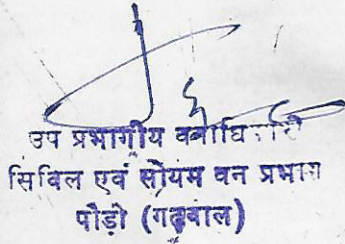 उप प्रभागीय वनाधिकारी
सिविल एवं सोयम वन प्रभाग
पौड़ी (गढ़वाल)